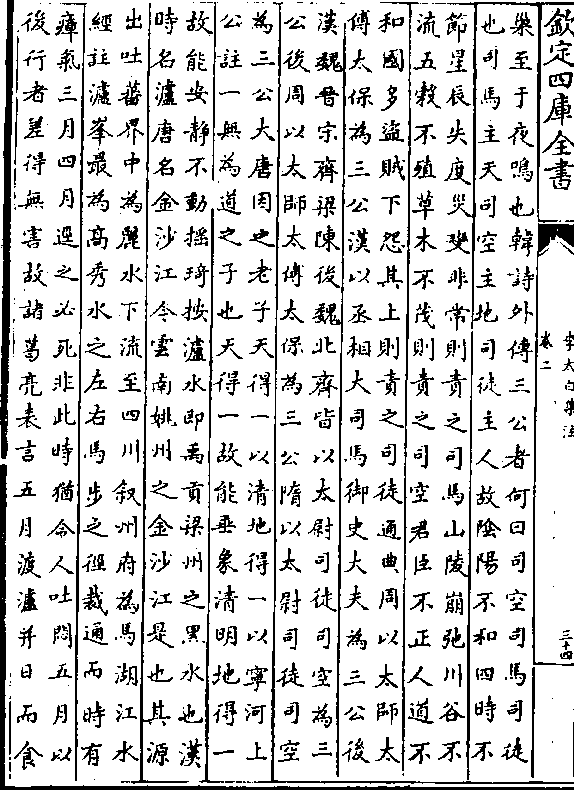 欽定四庫全書
李太白集注
卷二
三十四
樂至于夜鳴也韓詩外傳三公者何曰司空司馬司徒
也司馬主天司空主地司徒主人故陰陽不和四時不
節星辰失度災變非常則責之司馬山陵崩弛川谷不
流五穀不殖草木不茂則責之司空君臣不正人道不
和國多盜賊下怨其上則責之司徒通典周以太師太
傅太保為三公漢以丞相大司馬御史大夫為三公後
漢魏晉宋齊梁陳後魏北齊皆以太尉司徒司空為三
公後周以太師太傅太保為三公隋以太尉司徒司空
為三公大唐因之老子天得一以清地得一以寧河上
公註一無為道之子也天得一故能垂象清明地得一
故能安靜不動揺琦按瀘水即禹貢梁州之黑水也漢
時名瀘唐名金沙江今雲南姚州之金沙江是也其源
出吐蕃界中為麗水下流至四川叙州府為馬湖江水
經註瀘峯最為高秀水之左右馬步之徑裁通而時有
瘴氣三月四月逕之必死非此時猶令人吐悶五月以
後行者差得無害故諸葛亮表言五月渡瀘并日而食